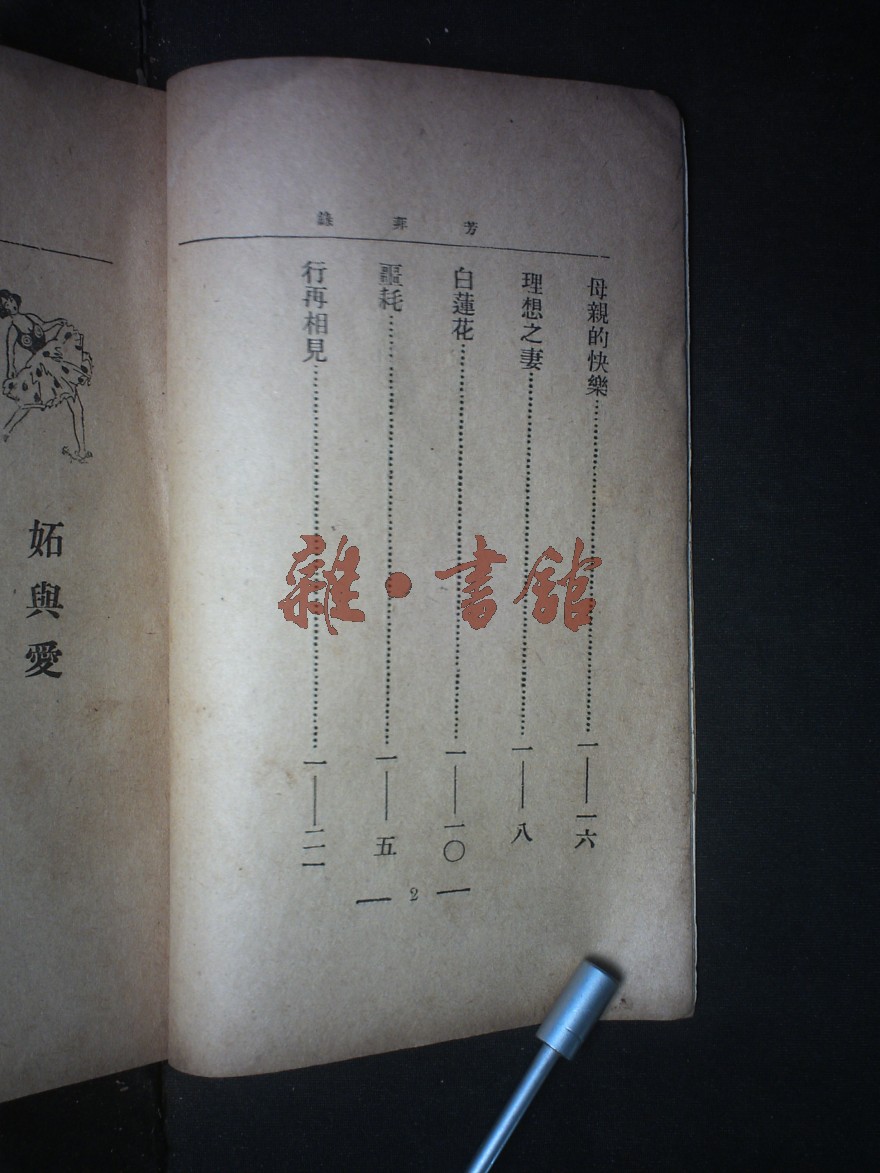 芳菲錄
母親的快樂……一——一六
理想之妻……一——八
白蓮花……一——一〇
噩耗……一——五
行再相見……一——二一
— 2 —
妬與愛
雜·書館